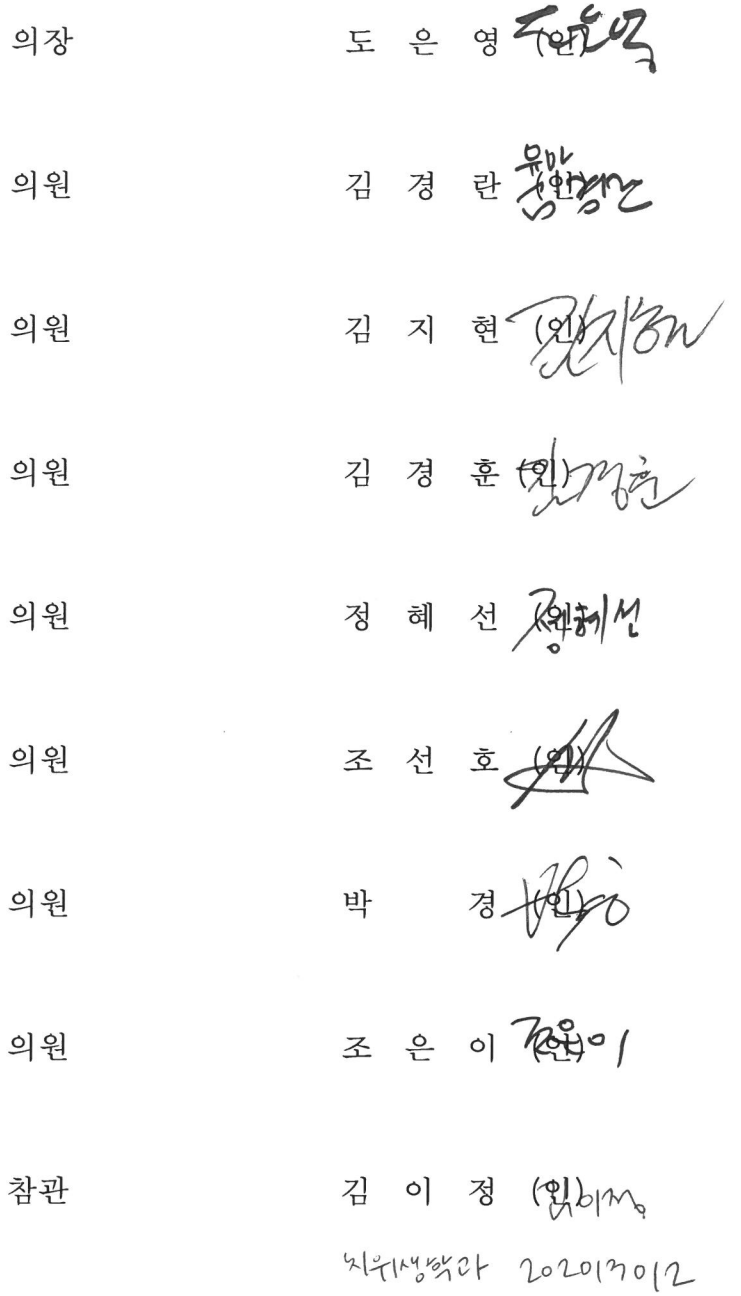 의장 도 은 영 (인) 도은영
의원 김 경 란 (인) 김경란
의원 김 지 현 (인) 김지현
의원 김 경 훈 (인) 김경훈
의원 정 혜 선 (인) 정혜선
의원 조 선 호 (인)
의원 박 경 (인) 박경
의원 조 은 이 (인) 조은이
참관 김 이 정 (인) 김이정
치위생학과 2020173012